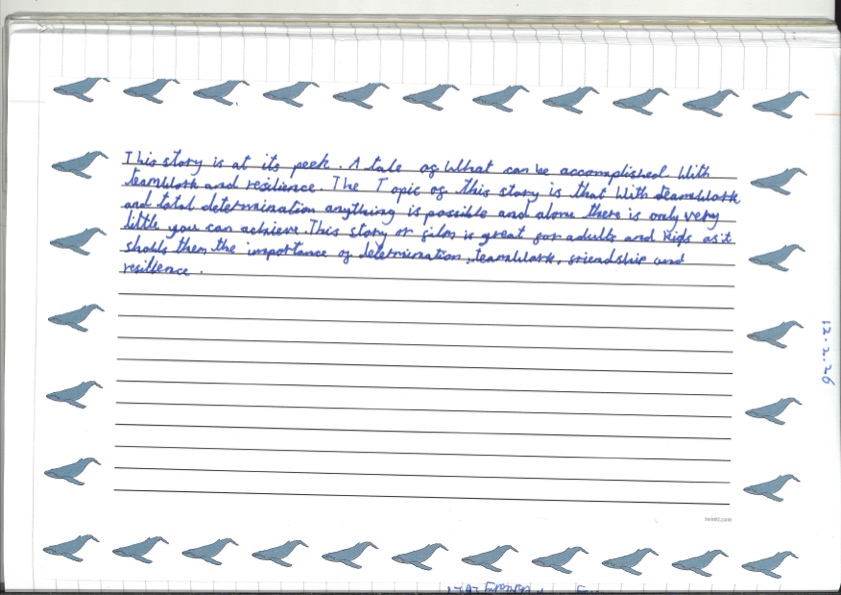 This story is at its peek. A tale of what can be accomplished with
teamwork and resilience. The Topic of this story is that with teamwork
and total determination anything is possible and alone there is only very
little you can achieve. This story or film is great for adults and kids as it
shows them the importance of determination, teamwork, friendship and
resilience.
12.2.26
twinkl.com